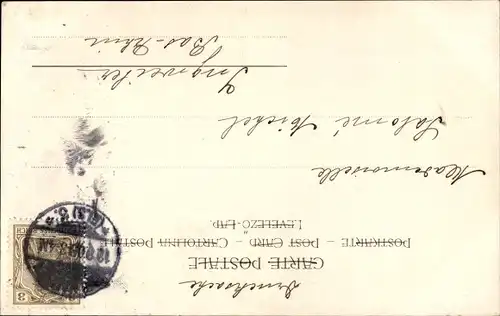 Drucksache
CARTE POSTALE
POSTKARTE – POST CARD – CARTOLINA POSTALE
LEVELEZŐ-LAP
Mademoiselle
Salomé Michel
Ingweiler
Bas-Rhin
3